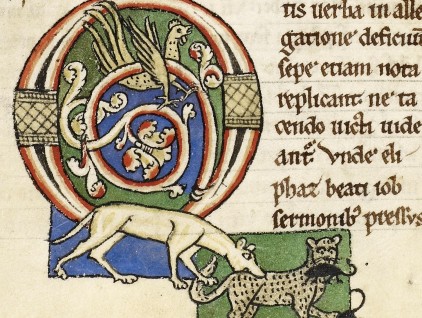 tis uerba in alle
gatione deficiunt
sepe etiam nota
replicant ne ta
cendo uicti uide
ant᷑. Vnde eli
phaz beati iob
sermonib; pressus